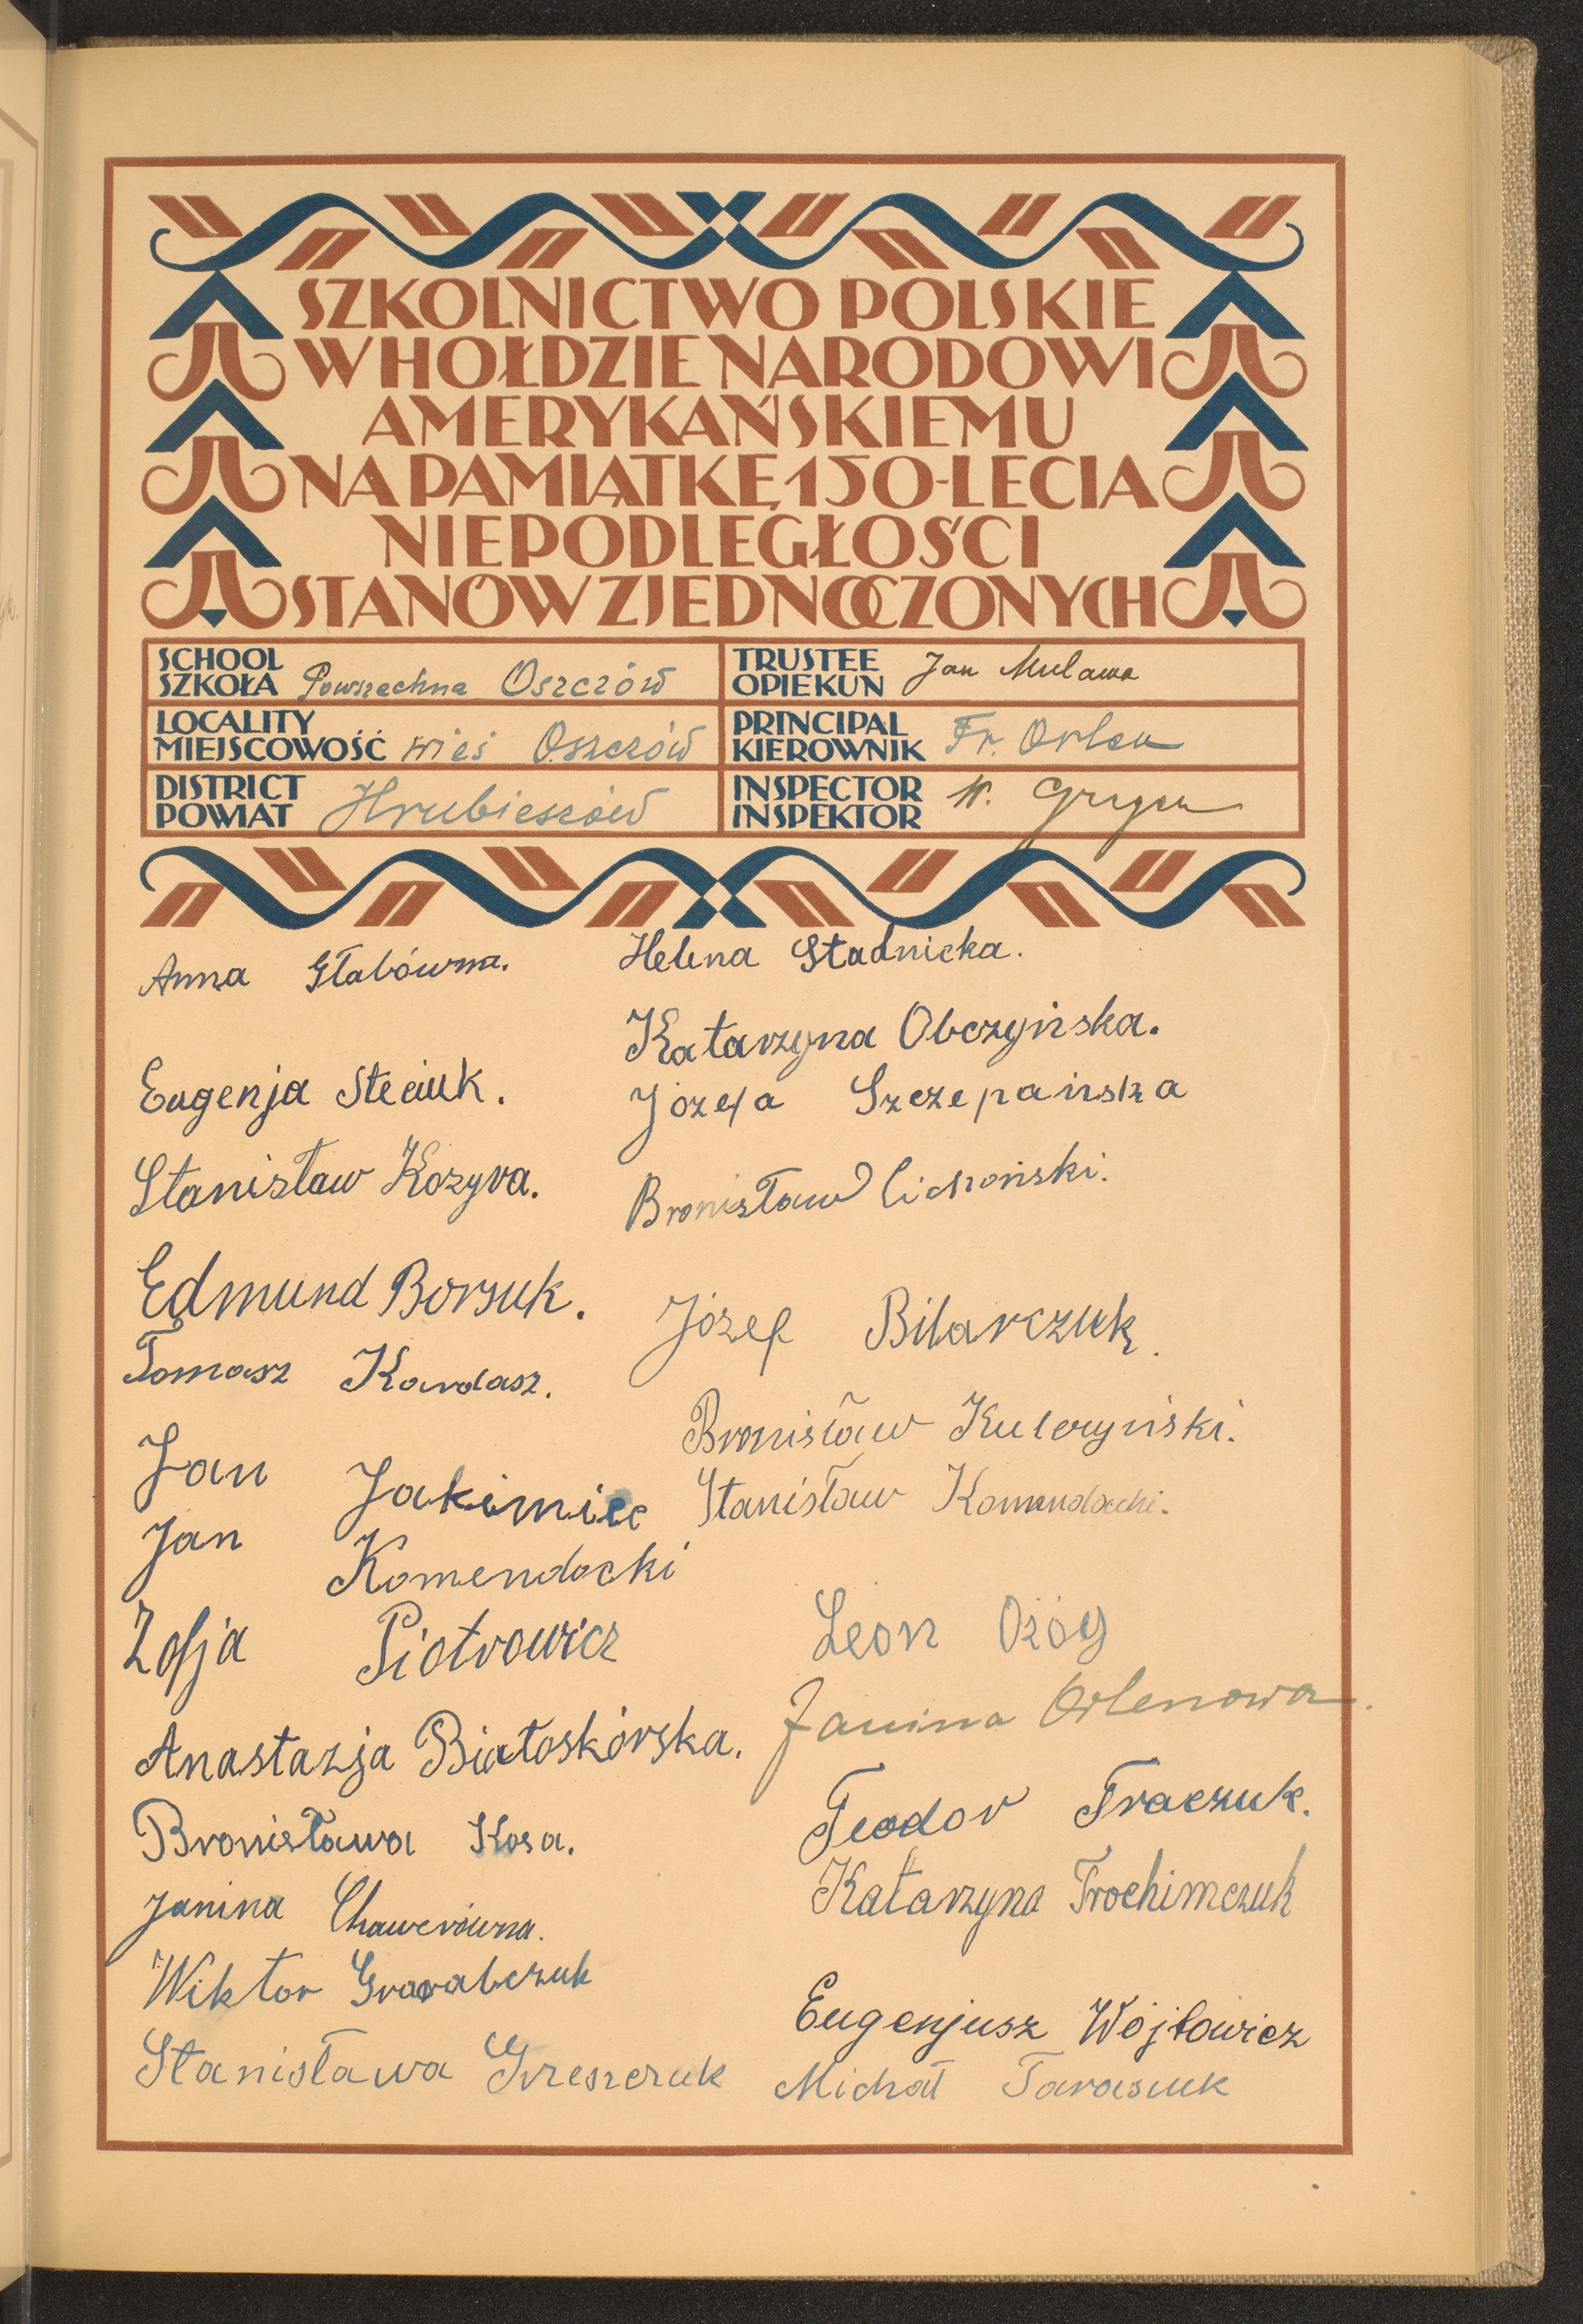 SZKOLNICTWO POLSKIE
W HOŁDZIE NARODOWI
AMERYKAŃSKIEMU
NA PAMIĄTKĘ 150-LECIA
NIEPODLEGŁOŚCI
STANÓW ZJEDNOCZONYCH
SCHOOL
SZKOŁA Powszechna Oszczów
TRUSTEE
OPIEKUN Jan Mulawa
LOCALITY
MIEJSCOWOŚĆ wieś Oszczów
PRINCIPAL
KIEROWNIK Fr. Orlen
DISTRICT
POWIAT Hrubieszów
INSPECTOR
INSPEKTOR W.
Anna Głabówna.
Eugenja Steciuk.
Stanisław Kozyra.
Edmund Borsuk.
Tomasz Kardasz.
Jan Jakimiec
Jan Komendacki
Zofja Piotrowicz
Anastazja Białoskórska.
Bronisława Kosa.
Janina Chawerówna.
Wiktor Grarabczuk
Stanisława Greszczuk
Helena Stadnicka.
Katarzyna Obczyńska.
Józefa Szczepańska
Bronisław Cichoński.
Józef Bilarczuk.
Bronisław Kulczyński.
Stanisław Komendacki.
Leon Ożóg
Janina Orlenowa.
Teodor Traczuk.
Katarzyna Trochimczuk
Eugenjusz Wójtowicz
Michał Tarasiuk